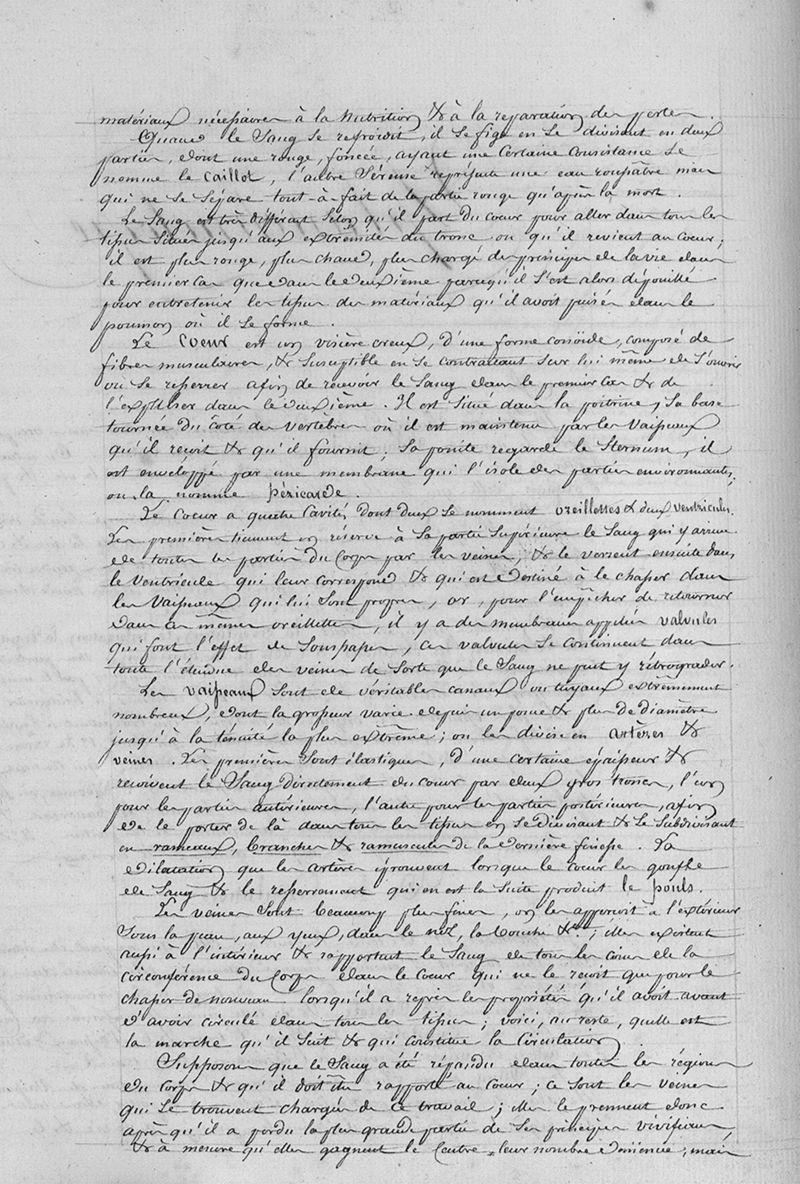 matériaux nécessaires à la nutrition & à la réparation des pertes.
Quand le Sang se refroidit, il se fige en se divisant en deux
parties, dont une rouge, foncée, ayant une certaine consistance se
nomme le caillot, l'autre séreuse représente une eau roussâtre mais
qui ne se sépare tout-à-fait de la partie rouge qu'après la mort.
Le Sang est très différent selon qu'il part du cœur pour aller dans tous les
tissus situés jusqu'aux extrémités du tronc ou qu'il revient au cœur;
il est plus rouge, plus chaud, plus chargé de principes de la vie dans
le premier cas que dans le deuxième parcequ'il s'est alors dépouillé
pour entretenir les tissus des matériaux qu'il avoit puisés dans le
poumon où il se forme.
Le cœur est un viscère creux, d'une forme conoïde, composé de
fibres musculaires, & susceptible en se contractant sur lui même de s'ouvrir
ou se resserrer afin de recevoir le Sang dans le premier cas & de
l'expulser dans le deuxième. Il est situé dans la poitrine, sa base
tournée du côté des vertèbres où il est maintenu par les vaisseaux
qu'il reçoit & qu'il fournit; sa pointe regarde le Sternum, il
est enveloppé par une membrane qui l'isole des parties environnantes,
on la nomme péricarde.
Le Cœur a quatre cavités, dont deux se nomment oreillettes & deux ventricules.
Les premières tiennent en réserve à sa partie supérieure le Sang qui y arrive
de toutes les parties du Corps par les veines, & le versent ensuite dans
le ventricule qui leur correspond & qui est destiné à le chasser dans
les vaisseaux qui lui sont propres, or, pour l'empêcher de retourner
dans ces mêmes oreillettes, il y a des membranes appelées valvules
qui font l'effet de Soupapes, ces valvules se continuent dans
toute l'étendue des veines de sorte que le Sang ne peut y rétrograder.
Les vaisseaux sont de véritables canaux ou tuyaux extrêmement
nombreux, dont la grosseur varie depuis un pouce & plus de diamètre
jusqu'à la ténuité la plus extrême; on les divise en artères &
veines. Les premières sont élastiques, d'une certaine épaisseur &
reçoivent le Sang directement du cœur par deux gros troncs, l'un
pour les parties antérieures, l'autre pour les parties postérieures, afin
de le porter de là dans tous les tissus en se divisant & se subdivisant
en rameaux, branches & ramuscules de la dernière finesse. La
dilatation que les artères éprouvent lorsque le cœur les gonfle
de Sang & le resserrement qui en est la suite produit le pouls.
Les veines sont beaucoup plus fines, on les apperçoit à l'extérieur
sous la peau, aux yeux, dans le nez, la bouche &c.; elles existent
aussi à l'intérieur & rapportent le Sang de tous les coins de la
circonférence du Corps dans le cœur qui ne le reçoit que pour le
chasser de nouveau lorsqu'il a repris les propriétés qu'il avoit avant
d'avoir circulé dans tous les tissus; voici, au reste, quelle est
la marche qu'il suit & qui constitue la Circulation.
Supposons que le Sang a été répandu dans toutes les régions
du corps & qu'il doit être rapporté au cœur; ce sont les veines
qui se trouvent chargées de ce travail; elles le prennent donc
après qu'il a perdu la plus grande partie de ses principes vivifians,
& à mesure qu'elles gagnent le Centre, leur nombre diminue, mais